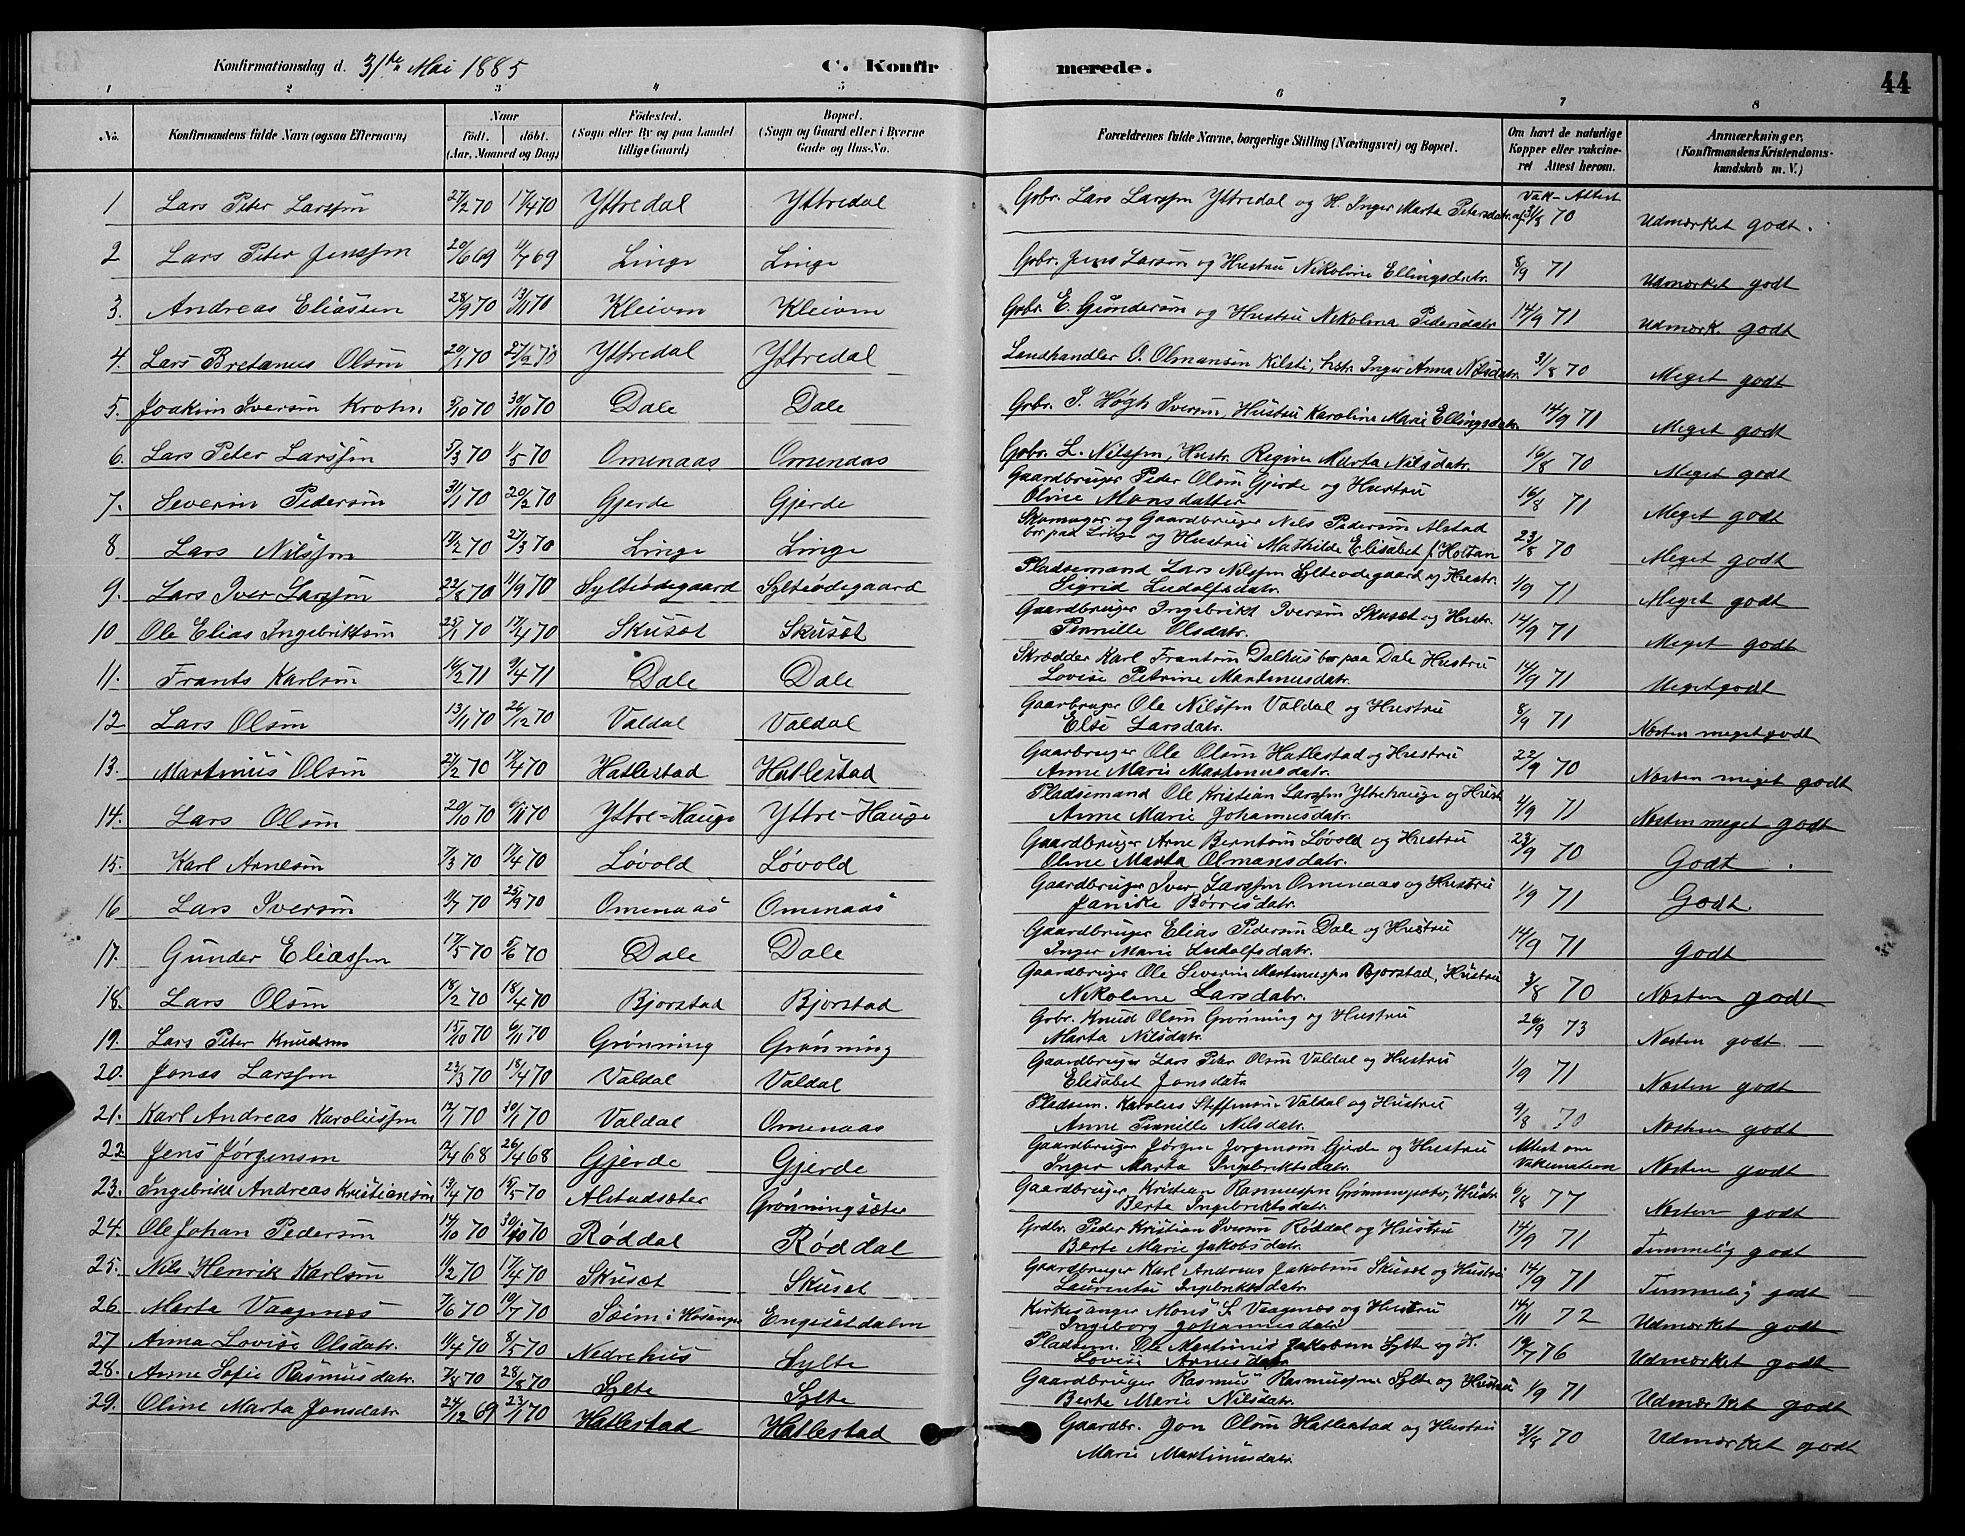 Konfirmationsdag d. 31te Mai 1885
C. Konfir merede. 44
1 2 3 4 5 6 7 8
No. Konfirmandens fulde Navn (ogsaa Efternavn) Naar født. døbt. (Aar, Maaned og Dag) Fødested. (Sogn eller By og paa Landet tillige Gaard) Bopæl. (Sogn og Gaard eller i Byerne Gade og Hus-No. Forældrenes fulde Navne, borgerlige Stilling (Næringsvei) og Bopæl. Om havt de naturlige Kopper eller vakcineret Attest herom. Anmærkninger. (Konfirmandens Kristendomskundskab m. V.)
1 Lars Peter Larssøn 27/2 70 17/4 70 Yttredal Yttredal Grbr. Lars Larssøn Yttredal og H. Inger Marta Petersdatr. Vak-Attest af 31/8 70 Udmærket godt.
2 Lars Peter Jenssøn 20/6 69 11/7 69 Linge Linge Grbr. Jens Larsøn og Hustru Nikoline Ellingsdatr. 8/9 71 Udmærket godt
3. Andreas Eliassen 28/9 70 13/11 70 Kleivon Kleivon Grbr. E. Gundersøn og Hustru Nikolina Pedersdatr 14/9 71 Udmærk. godt
4. Lars Bretanus Olsøn 20/1 70 27/2 70 Yttredal Yttredal Landhandler O. Olmansøn Kilsti, hstr. Inger Anna Nilsdatr. 31/8 70 Meget godt
5. Joakim Iversøn Krohn 5/10 70 30/10 70 Dale Dale Grbr. I. Høgh Iversøn, Hustru Karoline Marie Ellingsdatr. 14/9 71 Meget godt
6. Lars Peter Larssøn 5/3 70 1/5 70 Omenaas Omenaas Grbr. L. Nilssøn, Hustr. Regine Marta Nilsdatr. 16/8 70 Meget godt
7. Severin Pedersøn 31/1 70 20/2 70 Gjerde Gjerde Gaardbruger Peter Olsøn Gjerde og Hustru Oline Monsdatter 16/8 71 Meget godt
8 Lars Nilssøn 12/2 70 27/3 70 Linge Linge Skomager og Gaardbruger Nils Pedersøn Alstad bor paa Linge og Hustru Mathilde Elisabet f. Holtan 23/8 70 Meget godt
9. Lars Iver Larssøn 22/8 70 11/9 70 Sylteødegaard Sylteødegaard Pladsemand Lars Nilssøn Sylteødegaard og Hustr. Sigrid Ludolfsdatr. 1/9 71 Meget godt
10 Ole Elias Ingebriktsøn 25/1 70 17/4 70 Skuset Skuset Gaardbruger Ingebrikt Iversøn Skuset og Hustr. Pernille Olsdatr. 14/9 71 Meget godt
11. Frants Karlsøn 16/2 71 9/4 71 Dale Dale Skrædder Karl Frantsøn Dalhus bor paa Dale Hustru Lovise Petrine Martinusdatr. 14/9 71 Meget godt
12 Lars Olsøn 13/11 70 26/12 70 Valdal Valdal Gaarbruger Ole Nilssøn Valdal og Hustru Else Larsdatr. 8/9 71 Næsten meget godt
13. Martinus Olsøn 27/2 70 17/4 70 Hatlestad Hatlestad Gaarbruger Ole Olsøn Hatlestad og Hustru Anne Marie Martinusdatr. 22/9 70 Næsten meget godt
14. Lars Olsøn 20/10 70 6/11 70 Yttre-Hauge Yttre-Hauge Pladsemand Ole Kristian Larssøn Yttrehauge og Hustr Anne Marie Johannesdatr. 4/9 71 Næsten meget godt
15. Karl Arnesøn 7/3 70 17/4 70 Løvold Løvold Gaardbruger Arne Berntsøn Løvold og Hustru Oline Marta Olmansdatr. 23/9 70 Godt.
16 Lars Iversøn 11/7 70 25/9 70 Omenaas Omenaas Gaardbruger Iver Larssøn Omenaas og Hustru Janike Børresdatr. 1/9 71 Godt
17. Gunder Eliassøn 17/5 70 5/6 70 Dale Dale Gaardbruger Elias Pedersøn Dale og Hustru Inger Marie Ludolfsdatr. 14/9 71 Godt
18. Lars Olsøn 18/2 70 18/4 70 Bjorstad Bjorstad Gaardbruger Ole Severin Martinussøn Bjorstad, Hustru Nikoline Larsdatr. 3/8 70 Næsten godt
19. Lars Peter Knudsøn 15/10 70 6/11 70 Grønning Grønning Grbr. Knud Olsøn Grønning og Hustru Marta Nilsdatr. 26/9 73 Næsten godt
20. Jonas Larssøn 23/3 70 18/4 70 Valdal Valdal Gaardbruger Lars Peter Olsøn Valdal og Hustru Elisabet Jonsdatr. 1/9 71 Næsten godt
21. Karl Andreas Karolussøn 12/7 70 30/7 70 Valdal Omenaas Pladsem. Karolus Steffensøn Valdal og Hustru Anne Pernille Nilsdatr. 9/8 70 Næsten godt
22 Jens Jørgensøn 12/4 68 26/4 68 Gjerde Gjerde Gaardbruger Jørgen Jorgensøn Gjerde og Hustru Inger Marta Ingebriktsdatr. Attest om Vakcination Næsten godt
23. Ingebrikt Andreas Kristiansøn 13/4 70 15/5 70 Alstadsæter Grønningsæter Gaardbruger Kristian Rasmussøn Grønningsæter, Hustr. Berte Ingebriktsdatr. 6/8 77 Næsten godt
24. Ole Johan Pedersøn 14/10 70 30/10 70 Røddal Røddal Grdbr. Peder Kristian Iversøn Røddal og Hustru Berte Marie Jakobsdatr. 14/9 71 Temmelig godt
25. Nils Henrik Karlsøn 11/2 70 17/4 70 Skuset Skuset Gaardbruger Karl Andreas Jakobsøn Skuset og Hustru Laurentse Ingebriktsdatr. 14/9 71 Temmelig godt
26. Marta Vaagenæs 7/6 70 10/7 70 Seim i Hosanger Engesetdalen Kirkesanger Mons S. Vaagenæs og Hustru Ingeborg Johannesdatr. 14/11 72 Udmærket godt
27 Anna Lovise Olsdatr. 14/4 70 8/5 70 Nedrehus Sylte Pladsem. Ole Martinus Jakobsøn Sylte og H. Lovise Arnesdatr. 19/7 76 Udmærket godt
28. Anne Sofie Rasmusdatr. 7/8 70 28/8 70 Sylte Sylte Gaardbruger Rasmus Rasmussøn Sylte og Hustru Berte Marie Nilsdatr. 1/9 71 Udmærket godt
29. Oline Marta Jonsdatr. 24/12 69 23/1 70 Hatlestad Hatlestad Gaardbr. Jon Olsøn Hatlestad og Hustru Marie Martinusdatr. 31/8 70 Udmærket godt